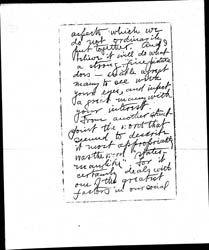 aspects which we
do not ordinarily
put together. And I
believe it will do what
a strong fine picture
does – enable a great
many to see with
your eyes, and infect
a great many with
your interest.
From another stand-
point the word that
seemed to describe
it most appropriately
was the word
for it
certainly deals with
one of the greatest
factors in our social